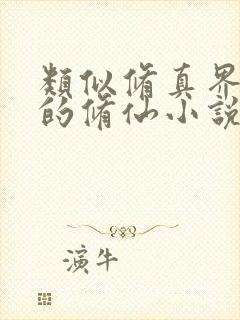 類似脩真界
的脩仙小說
演牛